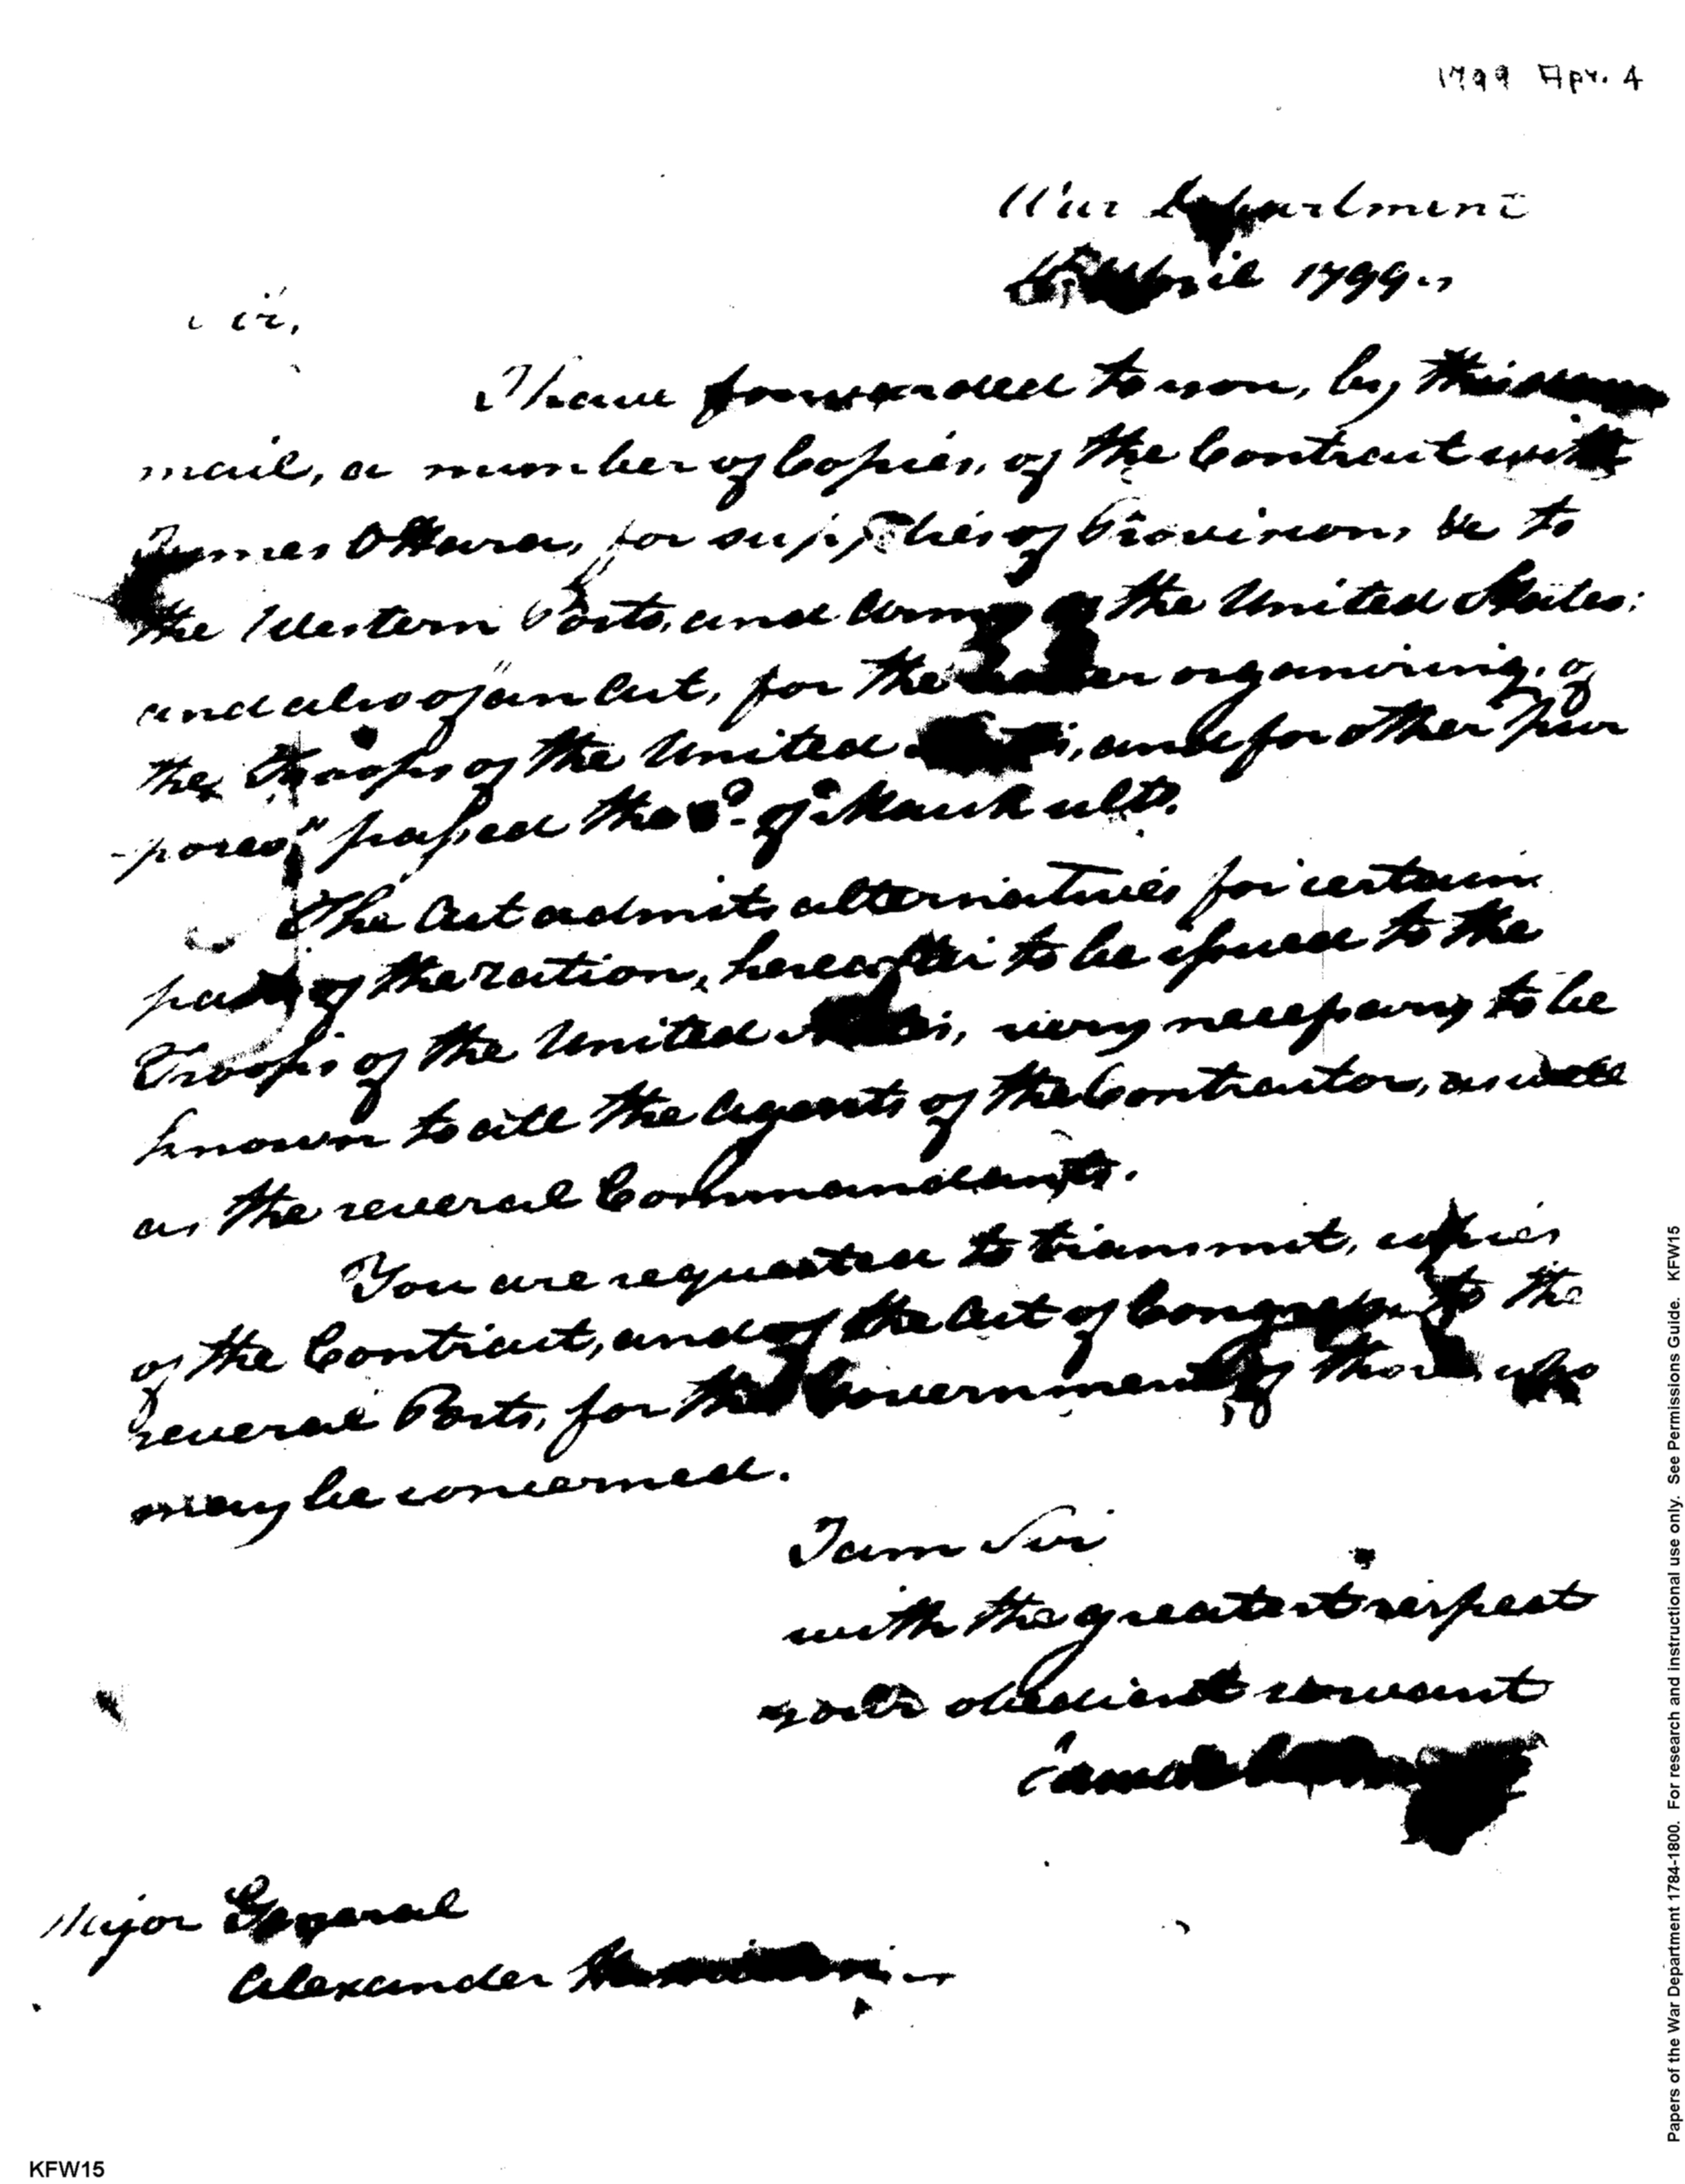 1799 Apr. 4
War Department
April 1799
Sir,
I have forwarded to you, by this day's
mail, a number of Copies, of the Contract with
James OHara, for supplies of Provisions &c to
the Western Posts, and Army of the United States:
and also of "an Act, for the better organizing, of
the Troops of the United States, and for other pur
-poses," passed the 3d. of March ulto.
The Act admits alternatives for certain
parts of the ration, hereafter to be issued to the
Troops of the United States, very necessary to be
known to all the Agents of the Contractor, as well
as the several Commandants.
You are requested to transmit, copies
of the Contract, and of the Act of Congress to the
several Posts, for the Government of those who
may be concerned.
I am Sir
with the greatest respect
your obedient servant
James
Major General
Alexander Hamilton
Papers of the War Department 1784-1800. For research and instructional use only. See Permissions Guide. KFW15
KFW15